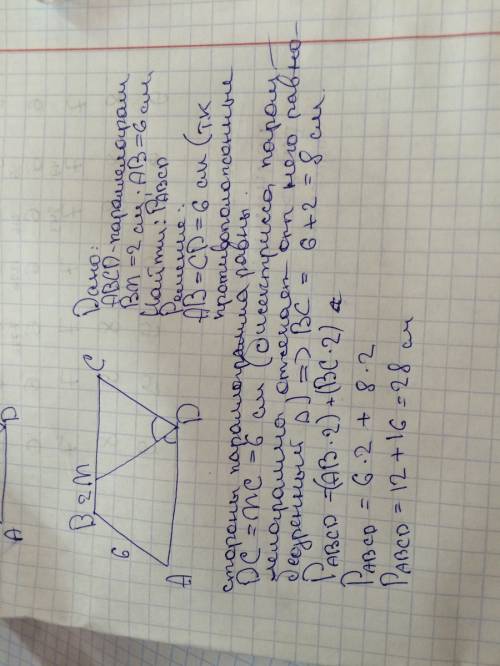 Дано:
ABCD-параллелограмм
BM = 2 см. AB = 6 см.
Найти: PABCD
Решение:
AB = CD = 6 см (т.к
противоположные
стороны параллелограмма равны.
DC = MC = 6 см (биссектриса парал-
лелограмма отсекает от него равно-
бедренный Δ) => BC = 6+2 = 8 см.
PABCD = (AB·2) + (BC·2)
PABCD = 6·2 + 8·2
PABCD = 12 + 16 = 28 см
B 2 M C
6
A D
A D